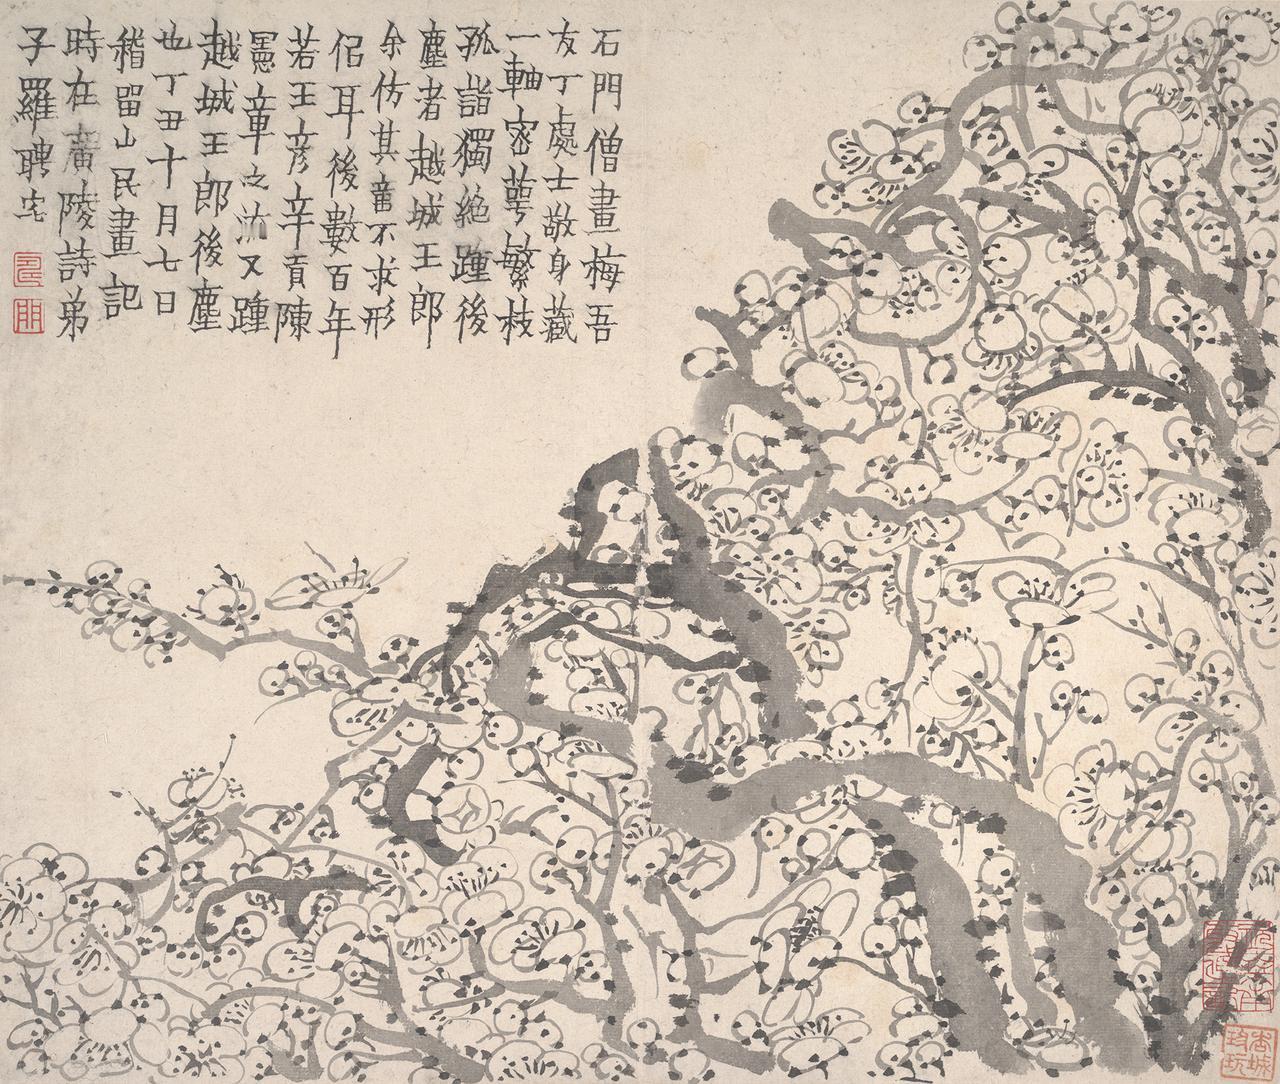 石門僧畫梅吾
友丁處士敬身藏
一軸密蕚繁枝
孤詣獨絶踵後
塵者越城王郎
余仿其畫不求形
侣耳後數百年
若王彦辛貢陳
憲章之流又踵
越城王郎後塵
也丁丑十月七日
稽留山民畫記
時在廣陵詩弟
子羅聘完
香城
珍玩